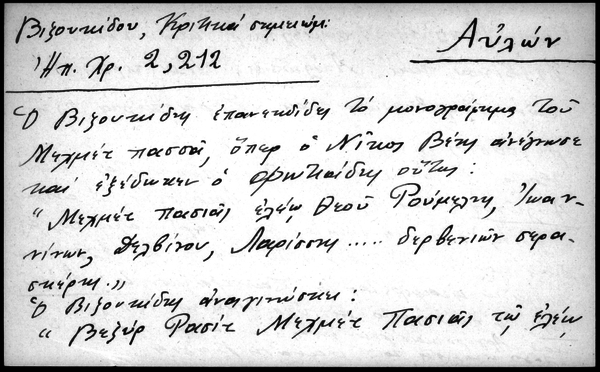 Βιζουκίδου, Κριτικαί σημειώμ:
Αὐλών
Ἠπ. Χρ. 2, 212
Ὁ Βιζουκίδης ἐπανεκδίδει τὸ μονογράφημα τοῦ
Μεχμέτ πασσᾶ, ὅπερ ὁ Νῖκος Βέης ἀνέγνωσε
καὶ ἐξέδωκεν ὁ Φωτιάδης οὕτως:
"Μεχμέτ πασιᾶς ἐλέῳ Θεοῦ Ρούμελης, Ἰωαν-
νίνων, Δελβίνου, Λαρίσσης ..... δερβενιῶν σερα-
σκέρης.„
Ὁ Βιζουκίδης ἀναγινώσκει:
"Βεζύρ Ρασίτ Μεχμέτ Πασιᾶς τῷ ἐλέῳ